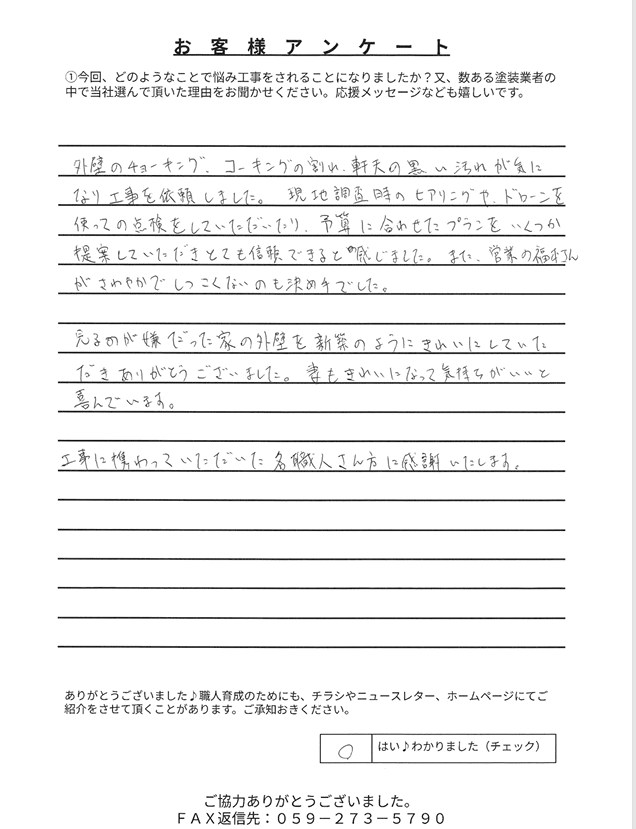 お客様アンケート
①今回、どのようなことで悩み工事をされることになりましたか？又、数ある塗装業者の
中で当社選んで頂いた理由をお聞かせください。応援メッセージなども嬉しいです。
外壁のチョーキング、コーキングの割れ、軒天の黒い汚れが気に
なり工事を依頼しました。現地調査時のヒアリングや、ドローンを
使っての点検をしていただいたり、予算に合わせたプランをいくつか
提案していただきとても信頼できると感じました。また、営業の福本さん
がさわやかでしつこくないのも決め手でした。
見るのが嫌だった家の外壁を新築のようにきれいにしていた
だきありがとうございました。妻もきれいになって気持ちがいいと
喜んでいます。
工事に携わっていただいた各職人さん方に感謝いたします。
ありがとうございました♪職人育成のためにも、チラシやニュースレター、ホームページにてご
紹介をさせて頂くことがあります。ご承知おきください。
はい♪わかりました（チェック）
ご協力ありがとうございました。
ＦＡＸ返信先：０５９－２７３－５７９０